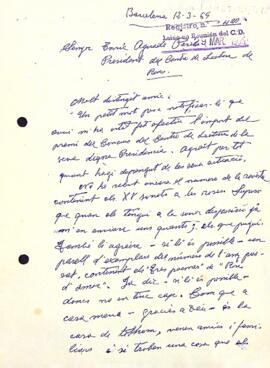 Barcelona 12-3-69
Registro, n.º
Leída en Reunión del C.D.
MAR 1969
Senyor Enric Aguadé
President del Centre de Lectura de
Reus.
Molt distingit amic:
Un petit mot per a notificar-li que
avui m'ha estat fet efectiu l'import del
premi del Concurs del Centre de Lectura de la
seva digna Presidència. Agraït per tot
quant hagi depengut de la seva actuació.
No he rebut encara el número de la revista
contenint els XV sonets a les roses. Suposo
que quan els tingui a la seva disposició ja
me'n enviarà uns quants; els que pugui.
També li agrairé - si li és possible - un
parell d'exemplars del número de l'any pas-
sat, contenint els "Tres poemes" de "Pura
d'amor". Ja dic - si li és possible -
doncs no en tinc cap. Com que a
casa meva - gràcies a Déu - és la
casa de tothom, venen amics i fami-
liars i si troben una cosa que els